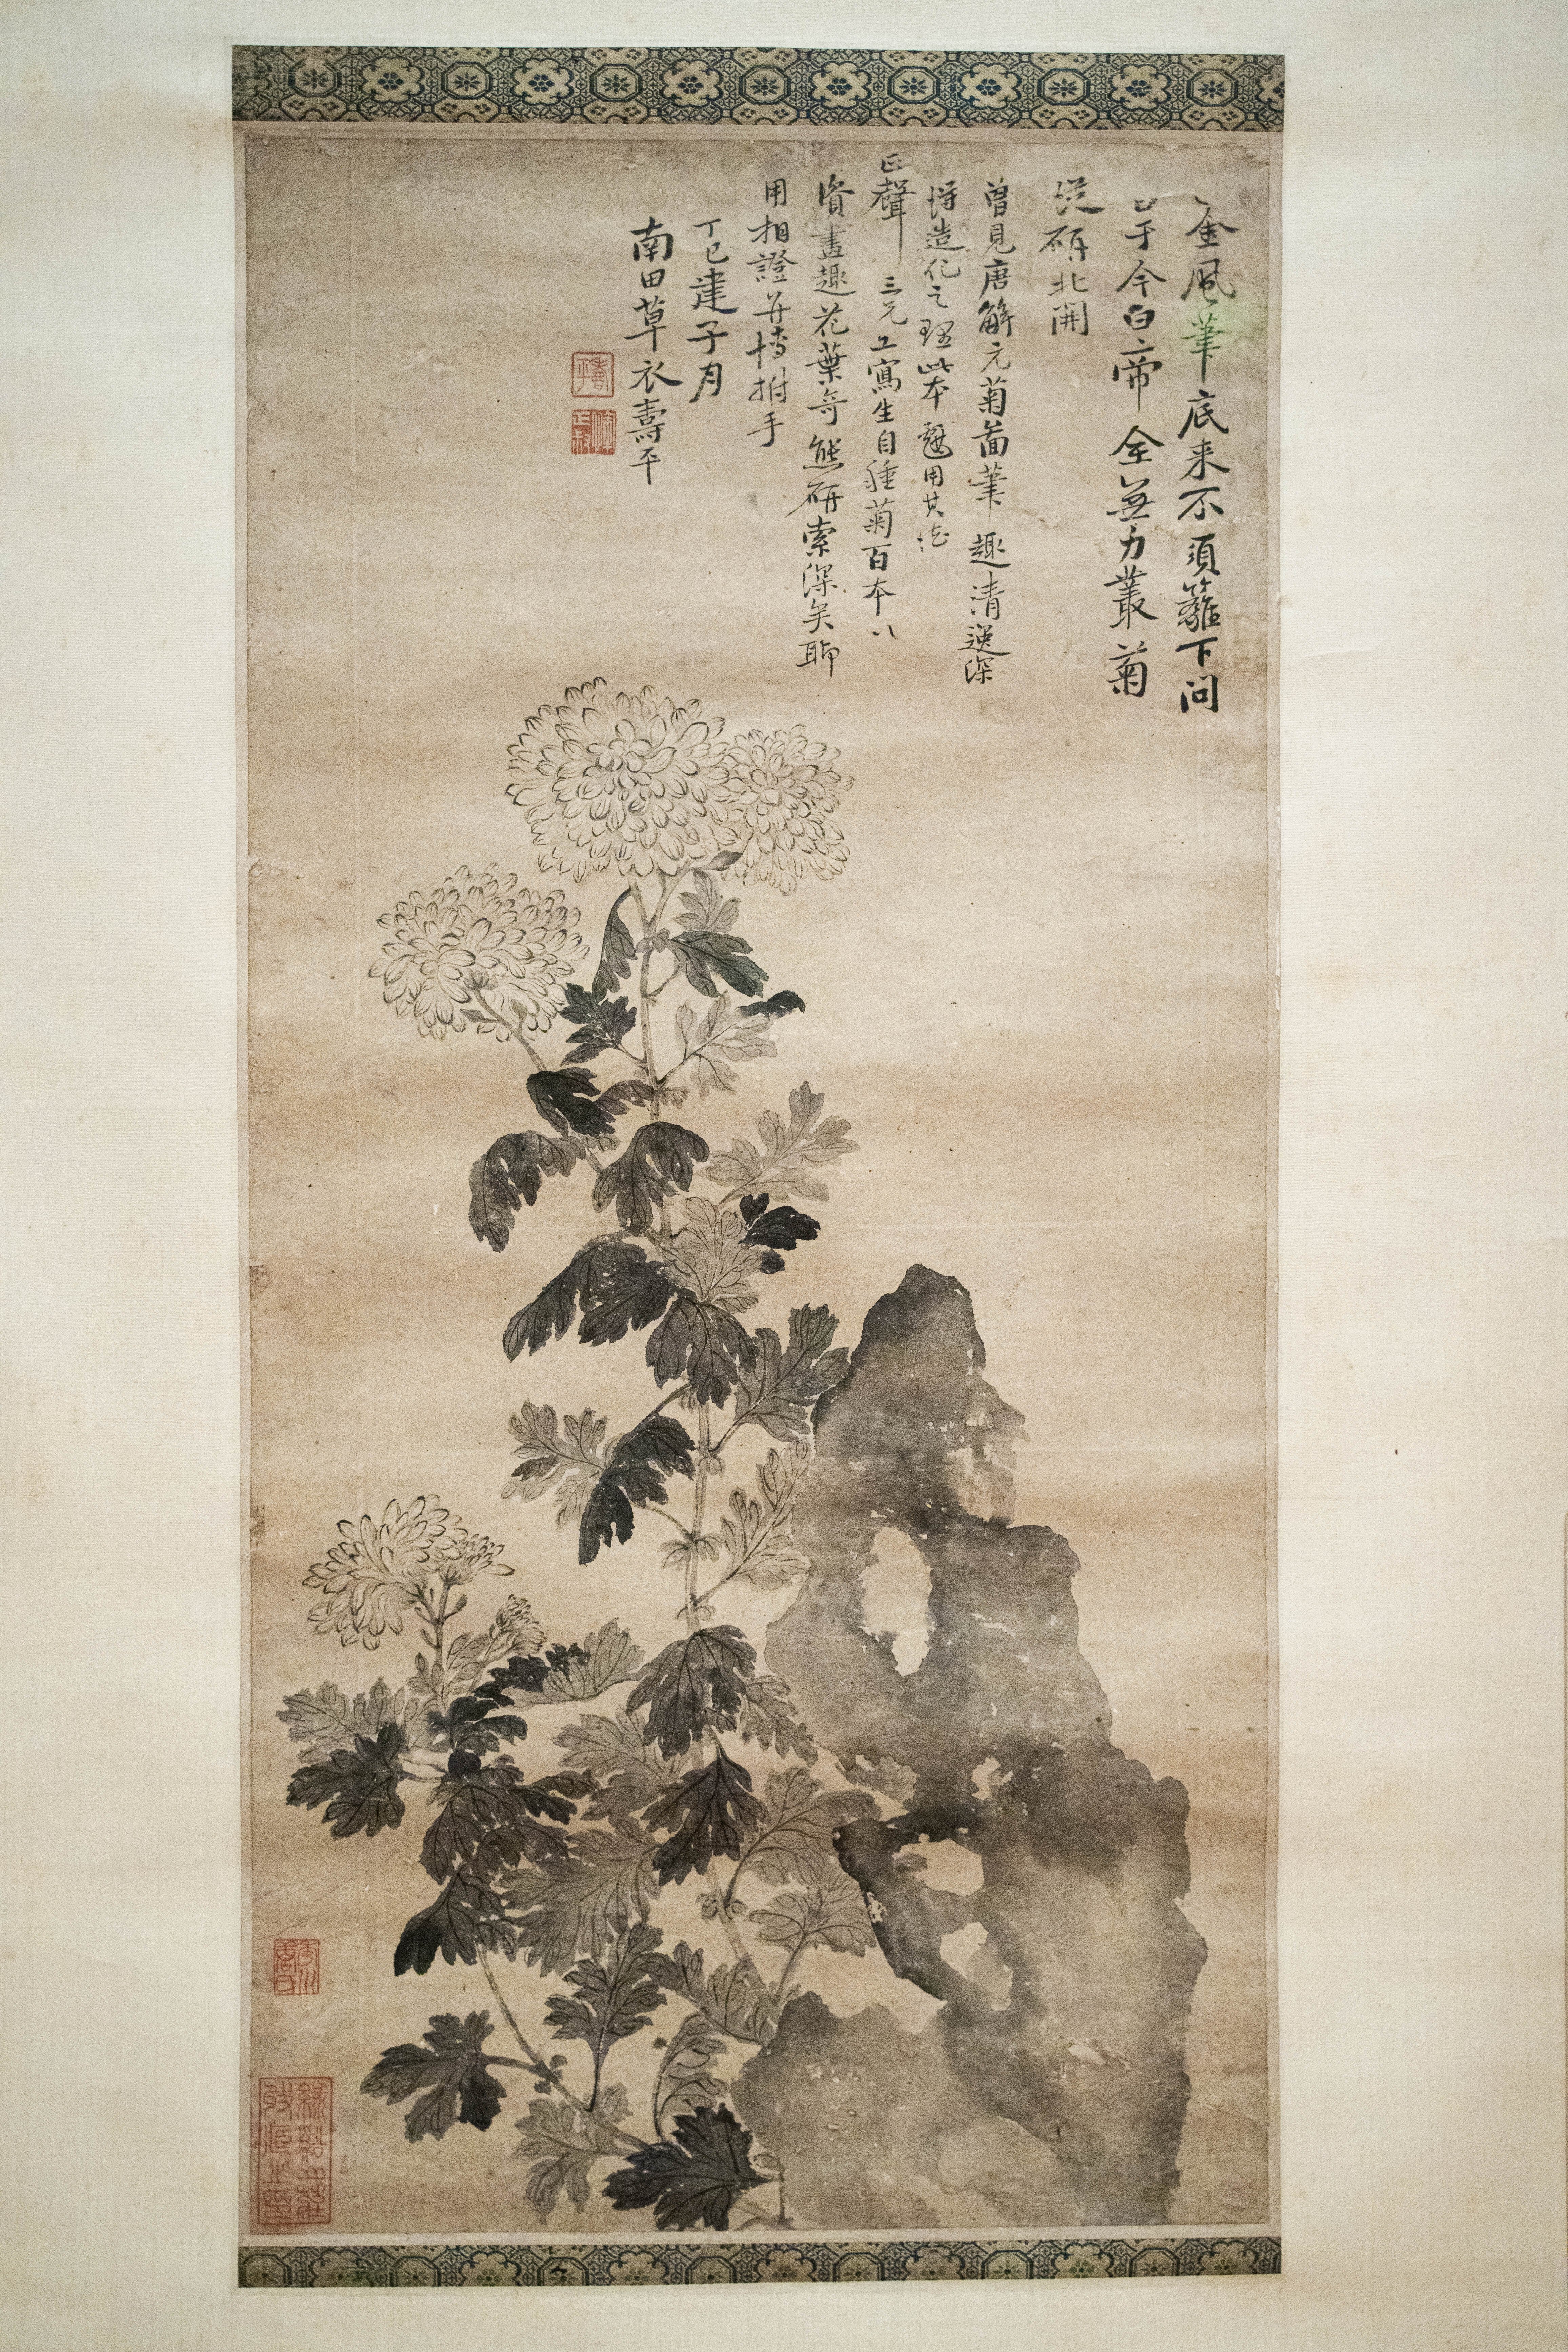 金風筆底来不須籬下問
于今白帝全無力叢菊
從硏北開
曾見唐解元菊啚筆趣清逸深
得造化之理此本戲用其法
正聲三兄工寫生自種菊百本以
資畫趣花葉奇態研索深矣聊
用相證并博拊手
丁巳建子月
南田草衣壽平
壽平